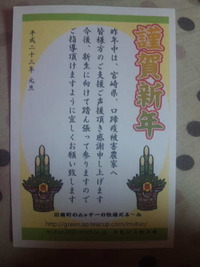 謹賀新年
昨年中は、宮崎県、口蹄疫被害農家へ
皆様方のご支援ご声援頂き感謝申し上げます
今後、新生に向けて踏ん張って参りますので
ご指導頂けますように宜しくお願い致します
平成二十三年 元旦